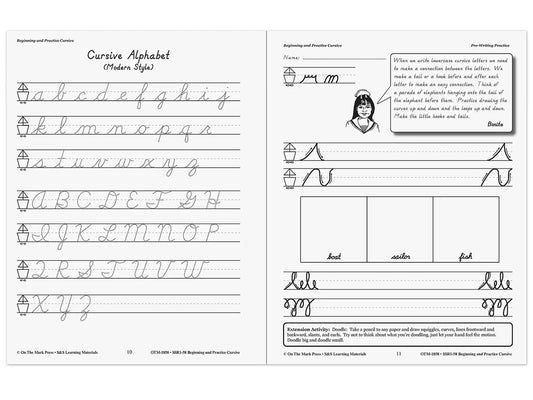 Beginning and Practice Cursive
Cursive Alphabet
(Modern Style)
a b c d e f g h i j
k l m n o p q r
s t u v w x y z
A B C D E F G H
I J K L M N O P
Q R S T U V W
X Y Z
© On The Mark Press • S&S Learning Materials 10 OTM-1858 • SSR1-58 Beginning and Practice Cursive
Beginning and Practice Cursive Pre-Writing Practice
Name:
When we write lowercase cursive letters we need
to make a connection between the letters. We
make a tail or a hook before and after each
letter to make an easy connection. Think of
a parade of elephants hanging onto the tail of
the elephant before them. Practice drawing the
curves up and down and the loops up and down.
Make the little hooks and tails.
boat sailor fish
Extension Activity: Doodle: Take a pencil to any paper and draw squiggles, curves, lines frontward and
backward, slants, and each. Try not to think about what you're doodling, just let your hand feel the motion.
Doodle big and doodle small.
© On The Mark Press • S&S Learning Materials 11 OTM-1858 • SSR1-58 Beginning and Practice Cursive